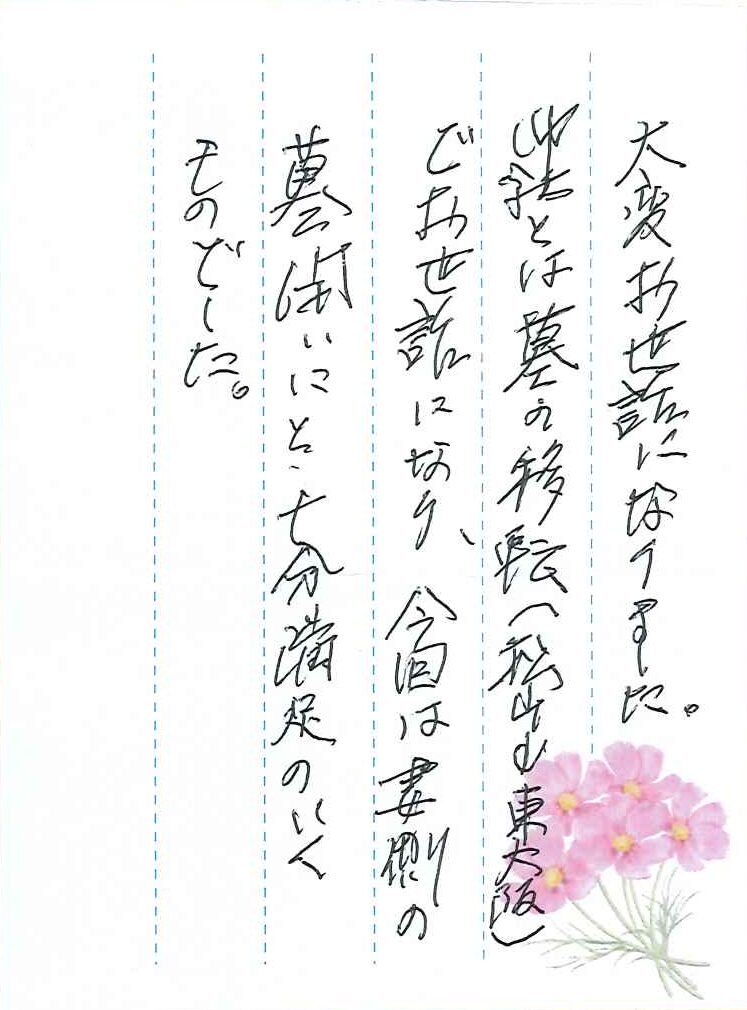 大変お世話になりました。
とは墓の移転(松山 東大阪)
でお世話になり、今回は妻側の
墓閉いにと十分満足のいく
ものでした。